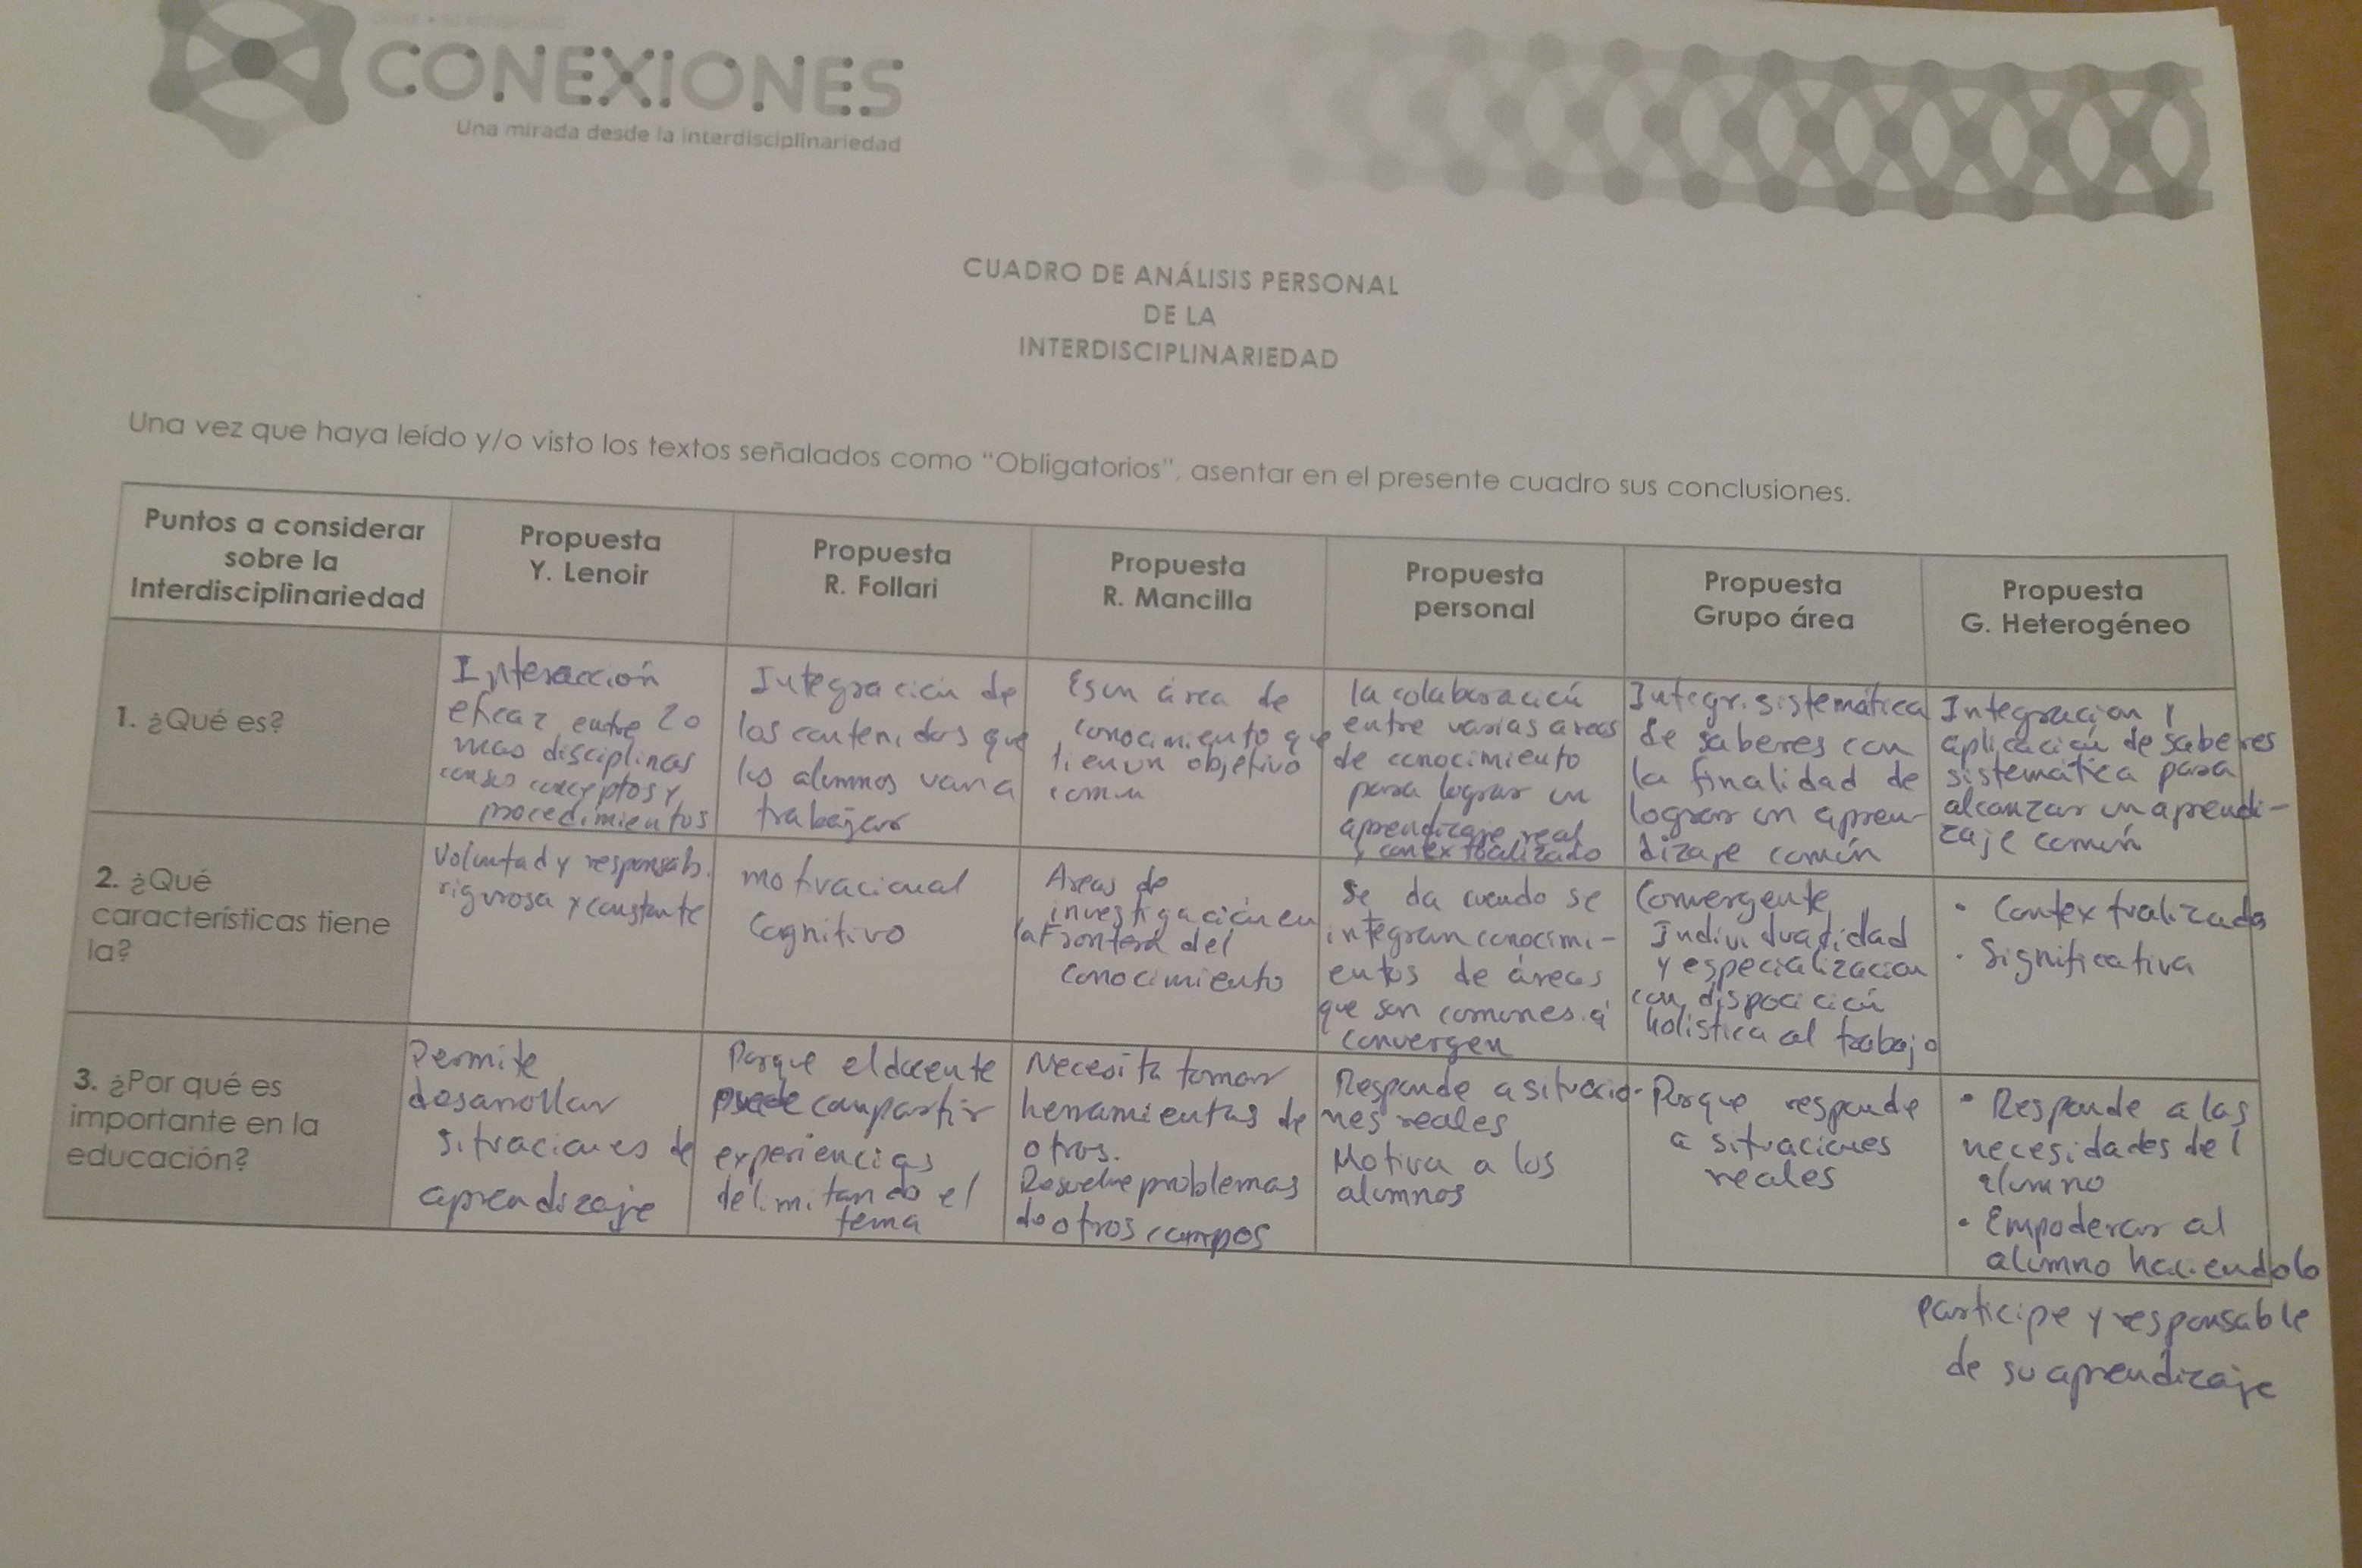 CONEXIONES
Una mirada desde la interdisciplinariedad
CUADRO DE ANÁLISIS PERSONAL
DE LA
INTERDISCIPLINARIEDAD
Una vez que haya leído y/o visto los textos señalados como "Obligatorios", asentar en el presente cuadro sus conclusiones.
Puntos a considerar
sobre la
Interdisciplinariedad
Propuesta
Y. Lenoir
Propuesta
R. Follari
Propuesta
R. Mancilla
Propuesta
personal
Propuesta
Grupo área
Propuesta
G. Heterogéneo
1. ¿Qué es?
Interacción
eficaz entre 2 o
mas disciplinas
con sus conceptos y
procedimientos
Integración de
los contenidos que
los alumnos van a
trabajar
Es un área de
conocimiento que
tienen un objetivo
comun
la colaboración
entre varias areas
de conocimiento
para lograr un
aprendizaje real
y contextualizado
Integr. sistemática
de saberes con
la finalidad de
lograr un apren-
dizaje común
Integración y
aplicación de saberes
sistemática para
alcanzar un aprendi-
zaje común
2. ¿Qué
características tiene
la?
Voluntad y responsab.
rigurosa y constante
motivacional
Cognitivo
Areas de
investigación en
la frontera del
conocimiento
Se da cuando se
integran conocimi-
entos de áreas
que son comunes ó
convergen
Convergente
Individualidad
y especialización
con disposición
holística al trabajo
• Contextualizada
• Significativa
3. ¿Por qué es
importante en la
educación?
Permite
desarrollar
situaciones de
aprendizaje
Porque el docente
puede compartir
experiencias
delimitando el
tema
Necesita tomar
herramientas de
otros.
Resuelve problemas
de otros campos
Responde a situacio-
nes reales
Motiva a los
alumnos
Porque responde
a situaciones
reales
• Responde a las
necesidades del
alumno
• Empoderar al
alumno haciendolo
participe y responsable
de su aprendizaje